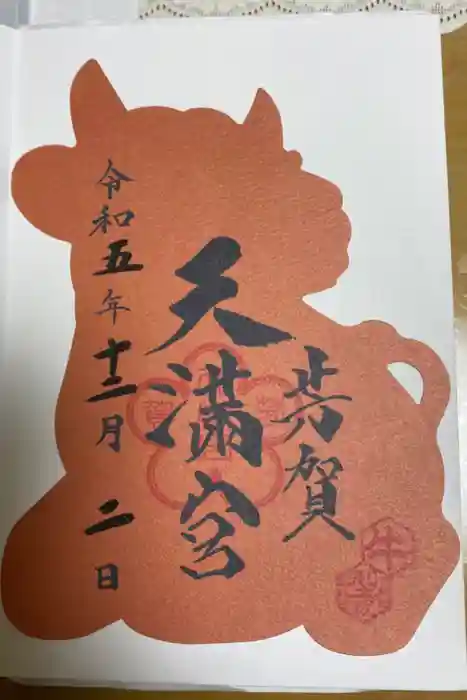 芳賀
天満宮
令和五年十二月二日
牛